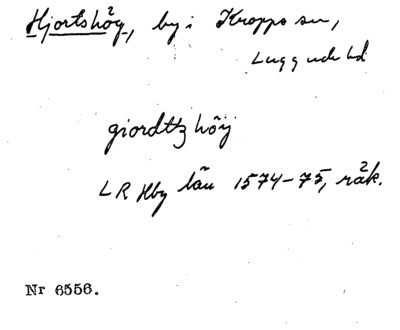 Hjortshög, by i Kropps sn,
Luggude hd
giordttz höij
LR Hbg län 1574-75, räk.
Nr 6556.